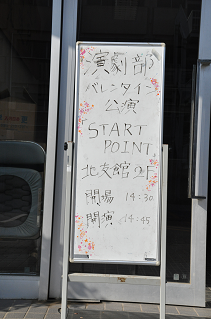 演劇部
バレンタイン
公演
「START
POINT」
北友館2F
開場 14:30
開演 14:45